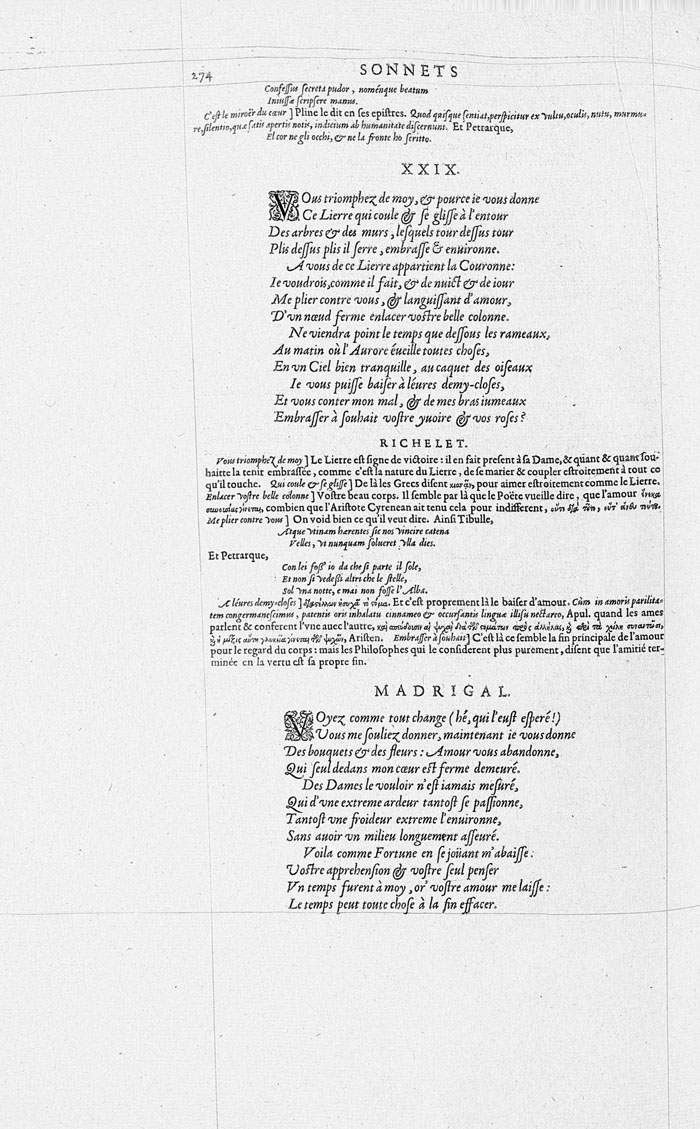 274 SONNETS
Confessus secreta pudor, noménque beatum
Iniussæ scripsere manus.
C'est le miroër du cœur ] Pline le dit en ses epistres. Quod quisque sentiat, perspicitur ex vultu, oculis, nutu, murmu-
re, silentio, quæ satis apertis notis, indicium ab humanitate discernunt. Et Petrarque,
El cor ne gli occhi, & ne la fronte ho scritto.
XXIX.
VOus triomphez de moy, & pource ie vous donne
Ce Lierre qui coule & se glisse à l'entour
Des arbres & des murs, lesquels tour dessus tour
Plis dessus plis il serre, embrasse & enuironne.
A vous de ce Lierre appartient la Couronne:
Ie voudrois, comme il fait, & de nuict & de iour
Me plier contre vous, & languissant d'amour,
D'vn nœud ferme enlacer vostre belle colonne.
Ne viendra point le temps que dessous les rameaux,
Au matin où l'Aurore éueille toutes choses,
En vn Ciel bien tranquille, au caquet des oiseaux
Ie vous puisse baiser à léures demy-closes,
Et vous conter mon mal, & de mes bras iumeaux
Embrasser à souhait vostre yuoire & vos roses?
RICHELET.
Vous triomphez de moy ] Le Lierre est signe de victoire: il en fait present à sa Dame, & quant & quant sou-
haitte la tenir embrassée, comme c'est la nature du Lierre, de se marier & coupler estroitement à tout ce
qu'il touche. Qui coule & se glisse ] De là les Grecs disent pour aimer estroitement comme le Lierre.
Enlacer vostre belle colonne ] Vostre beau corps. Il semble par là que le Poëte vueille dire, que l'amour
combien que l'Aristote Cyrenean ait tenu cela pour indifferent,
Me plier contre vous ] On void bien ce qu'il veut dire. Ainsi Tibulle,
Atque vtinam hærentes sic nos vincire catena
Velles, vt nunquam solueret vlla dies.
Et Petrarque,
Con lei foss' io da che si parte il sole,
Et non si vedessi altri che le stelle,
Sol vna notte, e mai non fosse l'Alba.
A léures demy-closes ] Et c'est proprement là le baiser d'amour. Cùm in amoris parilita-
tem congermanescimus, patentis oris inhalatu cinnameo & occursantis linguæ illisu nectareo, Apul. quand les ames
parlent & conferent l'vne auec l'autre,
Aristen. Embrasser à souhait ] C'est là ce semble la fin principale de l'amour
pour le regard du corps: mais les Philosophes qui le considerent plus purement, disent que l'amitié ter-
minée en la vertu est sa propre fin.
MADRIGAL.
VOyez comme tout change (hé, qui l'eust esperé!)
Vous me souliez donner, maintenant ie vous donne
Des bouquets & des fleurs: Amour vous abandonne,
Qui seul dedans mon cœur est ferme demeuré.
Des Dames le vouloir n'est iamais mesuré,
Qui d'vne extreme ardeur tantost se passionne,
Tantost vne froideur extreme l'enuironne,
Sans auoir vn milieu longuement asseuré.
Voila comme Fortune en se joüant m'abaisse:
Vostre apprehension & vostre seul penser
Vn temps furent à moy, or' vostre amour me laisse:
Le temps peut toute chose à la fin effacer.